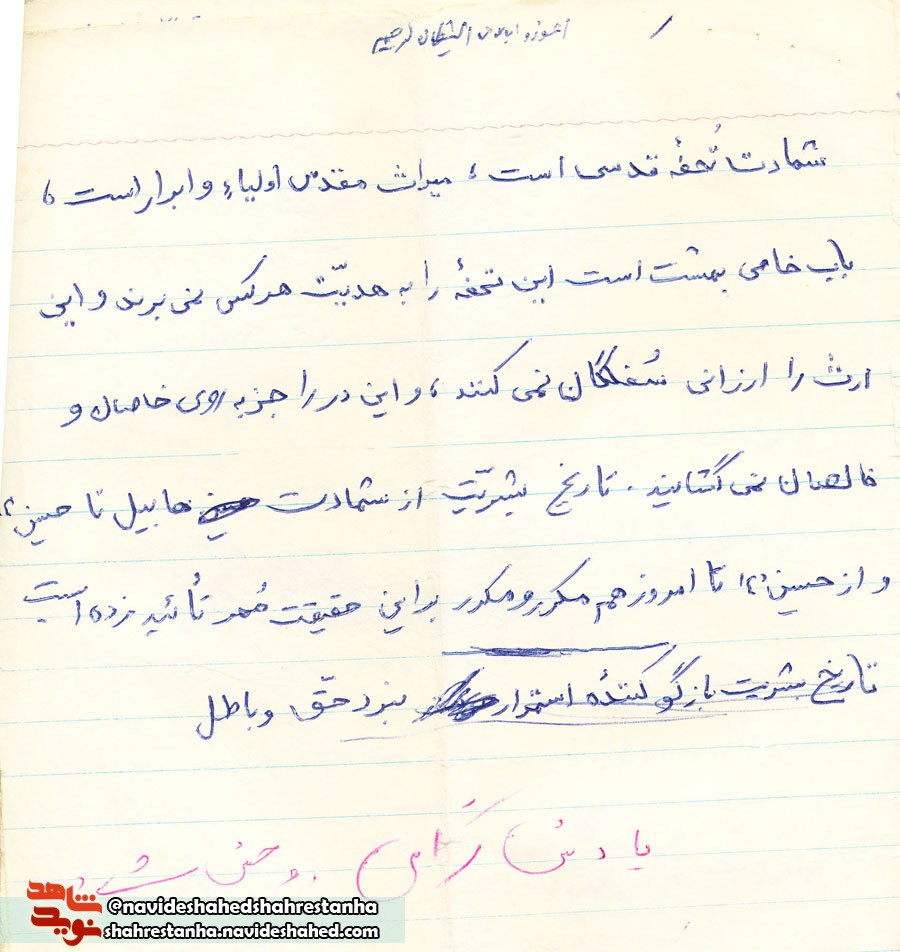 اعوذ و ابالله من الشیطان لرجیم
شهادت تُحفهٔ قدسی است ، میراث مقدّس اولیاء و ابرار است ،
باب خاصی بهشت است این تحفهٔ را به هدیّت هر کس نمی برند و این
ارث را ارزانی سُفلگان نمی کنند ، و این در را جز به روی خاصان و
خالصان نمی گشایند . تاریخ بشریّت از شهادت هابیل تا حسین (ع)
و از حسین (ع) تا امروز هم مکرر و مکرر بر این حقیقت مُهر تأئید زده است
تاریخ بشریت بازگو کنندهٔ استمرار نبرد حقّ و باطل
یادش گرامی روحش شاد
نوید شاهد
@navideshahedshahrestanha
shahrestanha.navideshahed.com